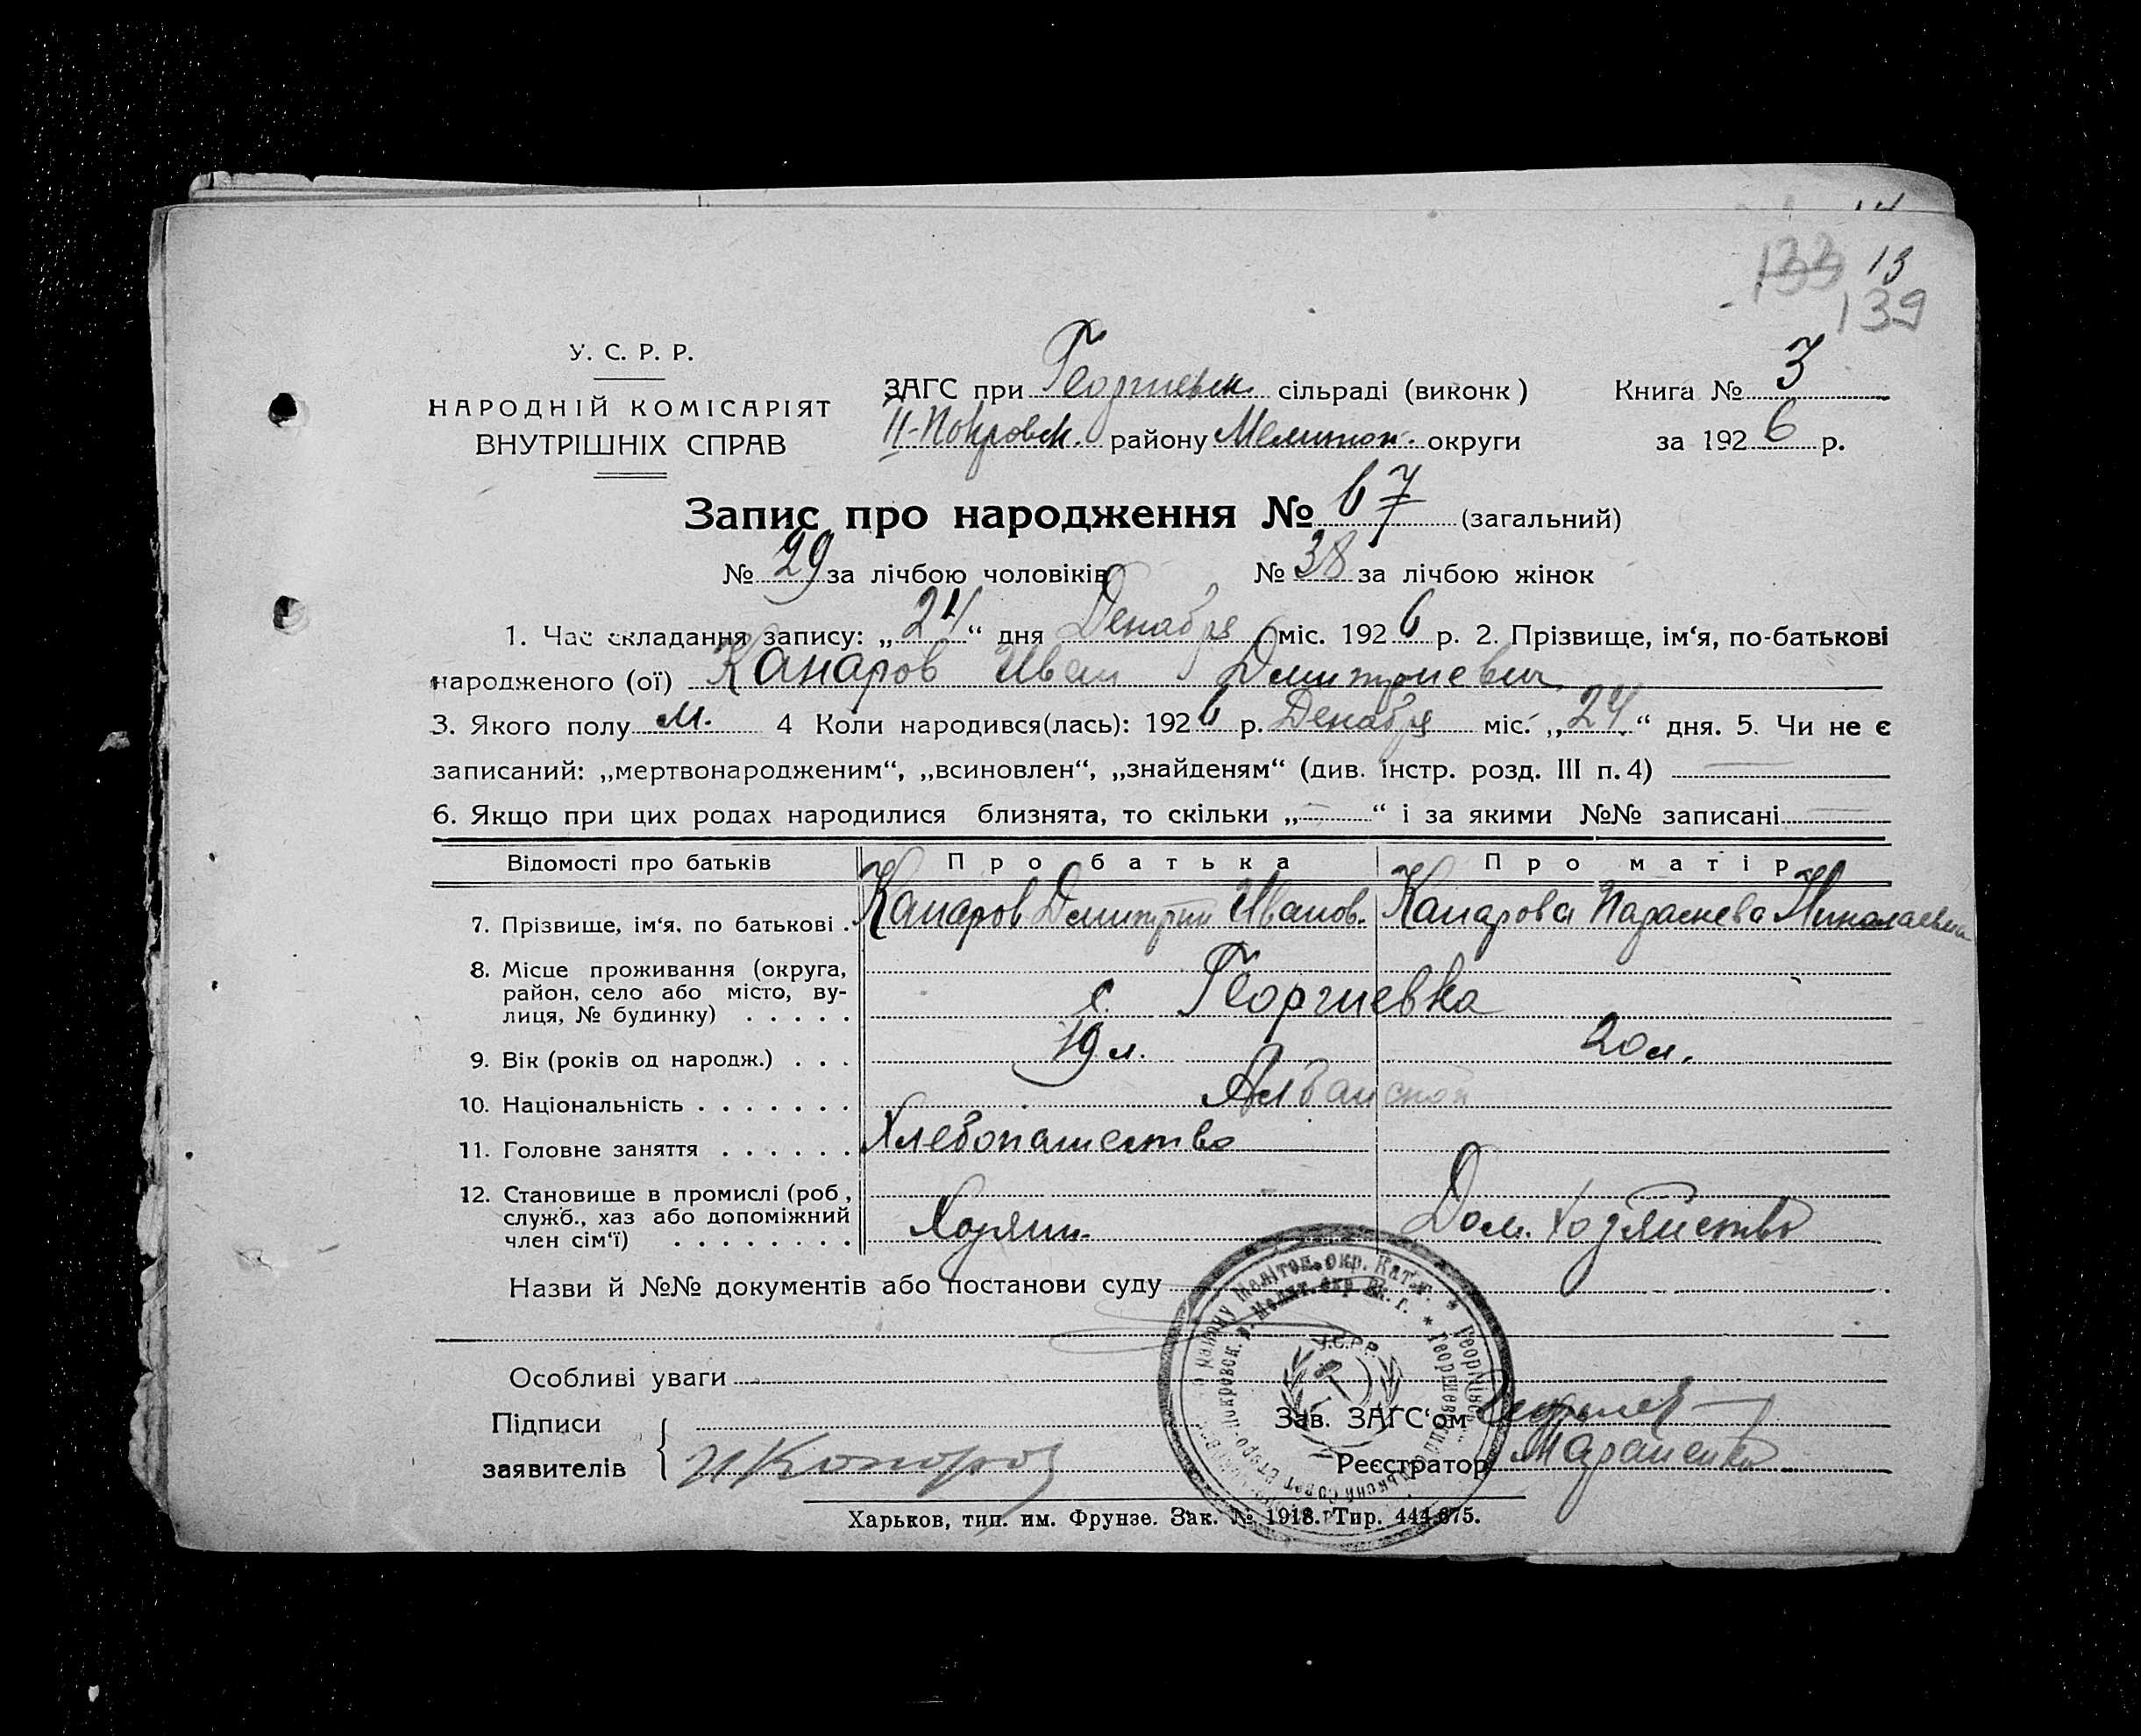 133 13
139
У. С. Р. Р.
НАРОДНІЙ КОМІСАРІЯТ
ВНУТРІШНІХ СПРАВ
ЗАГС при Георгиевск. сільраді (виконк)
II-Покровск. району Мелитоп. округи
Книга № 3
за 1926 р.
Запис про народження № 67 (загальний)
№ 29 за лічбою чоловіків № 38 за лічбою жінок
1. Час складання запису: „24“ дня Декабря міс. 1926 р. 2. Прізвище, ім‘я, по-батькові
народженого (ої) Канаров Иван Дмитриевич
3. Якого полу м. 4 Коли народився(лась): 1926 р. Декабря міс. „24“ дня. 5. Чи не є
записаний: „мертвонародженим“, „всиновлен“, „знайденям“ (див. інстр. розд. III п. 4)
6. Якщо при цих родах народилися близнята, то скільки „—“ і за якими №№ записані
Відомості про батьків Про батька Про матір
7. Прізвище, ім‘я, по батькові . Канаров Дмитрий Иванов. Канарова Параскева Николаевна
8. Місце проживання (округа,
район, село або місто, ву-
лиця, № будинку) . . . . . с. Георгиевка
9. Вік (років од народж.) . . . 19 л. 20 л.
10. Національність . . . . . . . Албанской
11. Головне заняття . . . . . . Хлебопашество
12. Становище в промислі (роб,
служб., хаз або допоміжний
член сім‘ї) . . . . . . . . Хозяин. Дом. хозяйство
Назви й №№ документів або постанови суду
Особливі уваги
Підписи
заявителів
И Коноров
У.С.Р.Р.
Зав. ЗАГС‘ом
Реєстратор
Харьков, тип. им. Фрунзе. Зак. № 1918. Тир. 444.675.